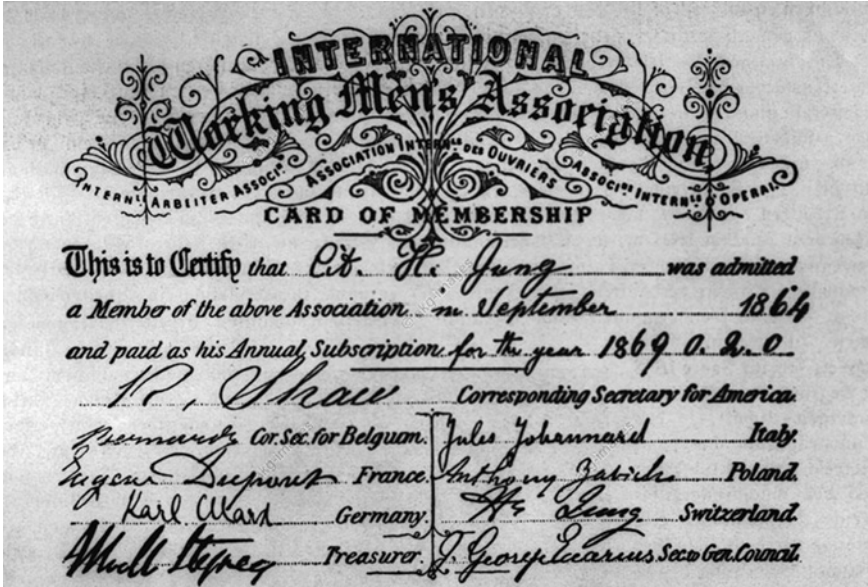 INTERNATIONAL
Working Men's Association
INTERNLE ARBEITER ASSOCN. ASSOCIATION INTERNLE DES OUVRIERS ASSOCINE INTERNLE D'OPERAI.
CARD OF MEMBERSHIP
This is to Certify that Cit. H. Jung was admitted
a Member of the above Association in September 1864
and paid as his Annual Subscription for the year 1869 0.2.0
R. Shaw Corresponding Secretary for America.
Bernard Cor. Sec. for Belgium. Jules Johannard Italy.
Eugene Dupont France. Anthony Zabicki Poland.
Karl Marx Germany. H. Jung Switzerland.
Treasurer. J. George Eccarius Sec. to Gen. Council.